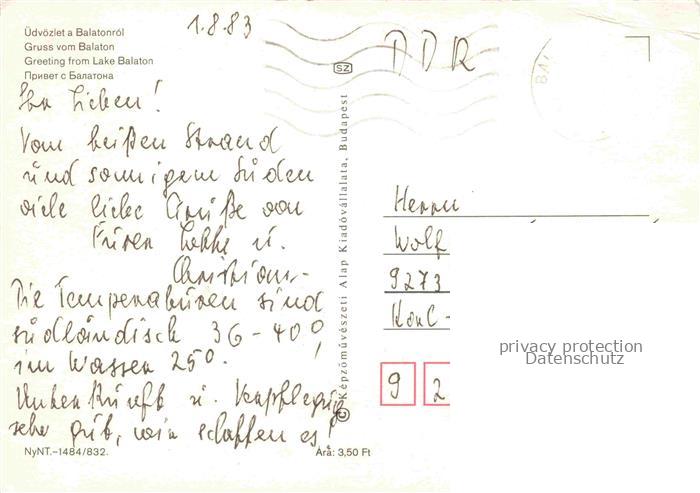 1.8.83
Üdvözlet a Balatonról
Gruss vom Balaton
Greeting from Lake Balaton
Привет с Балатона
Ihr Lieben!
Vom heißen Strand
und sonnigem Süden
viele liebe Grüße von
Euren u.
Christian-
Die Temperaturen sind
südländisch 36-40°,
im Wasser 25°.
Unterkunft u. Verpflegung
sehr gut, wir schaffen es!
NyNT.–1484/832.
Ára: 3,50 Ft
SZ
© Képzőművészeti Alap Kiadóvállalata, Budapest
DDR
BA
Herrn
Wolf
9273
Karl-
9 2
privacy protection
Datenschutz